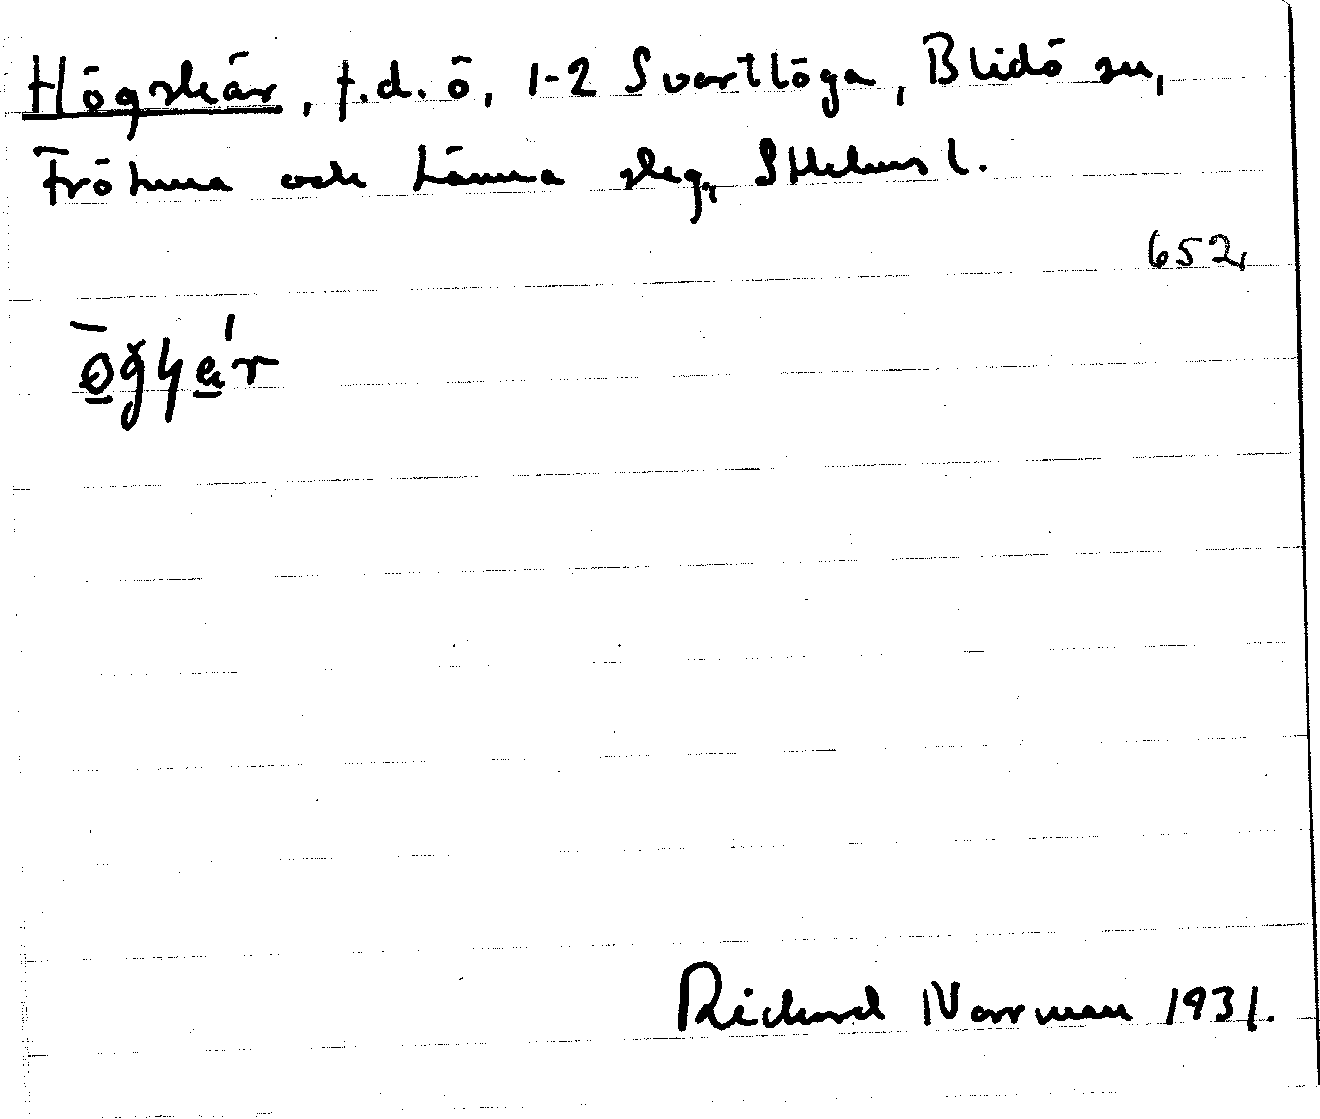 Högskär, f.d. ö, 1-2 Svartlöga, Blidö sn,
Frötuna och Länna slag, Sthlms l.
652,
Richard Norrman 1931.